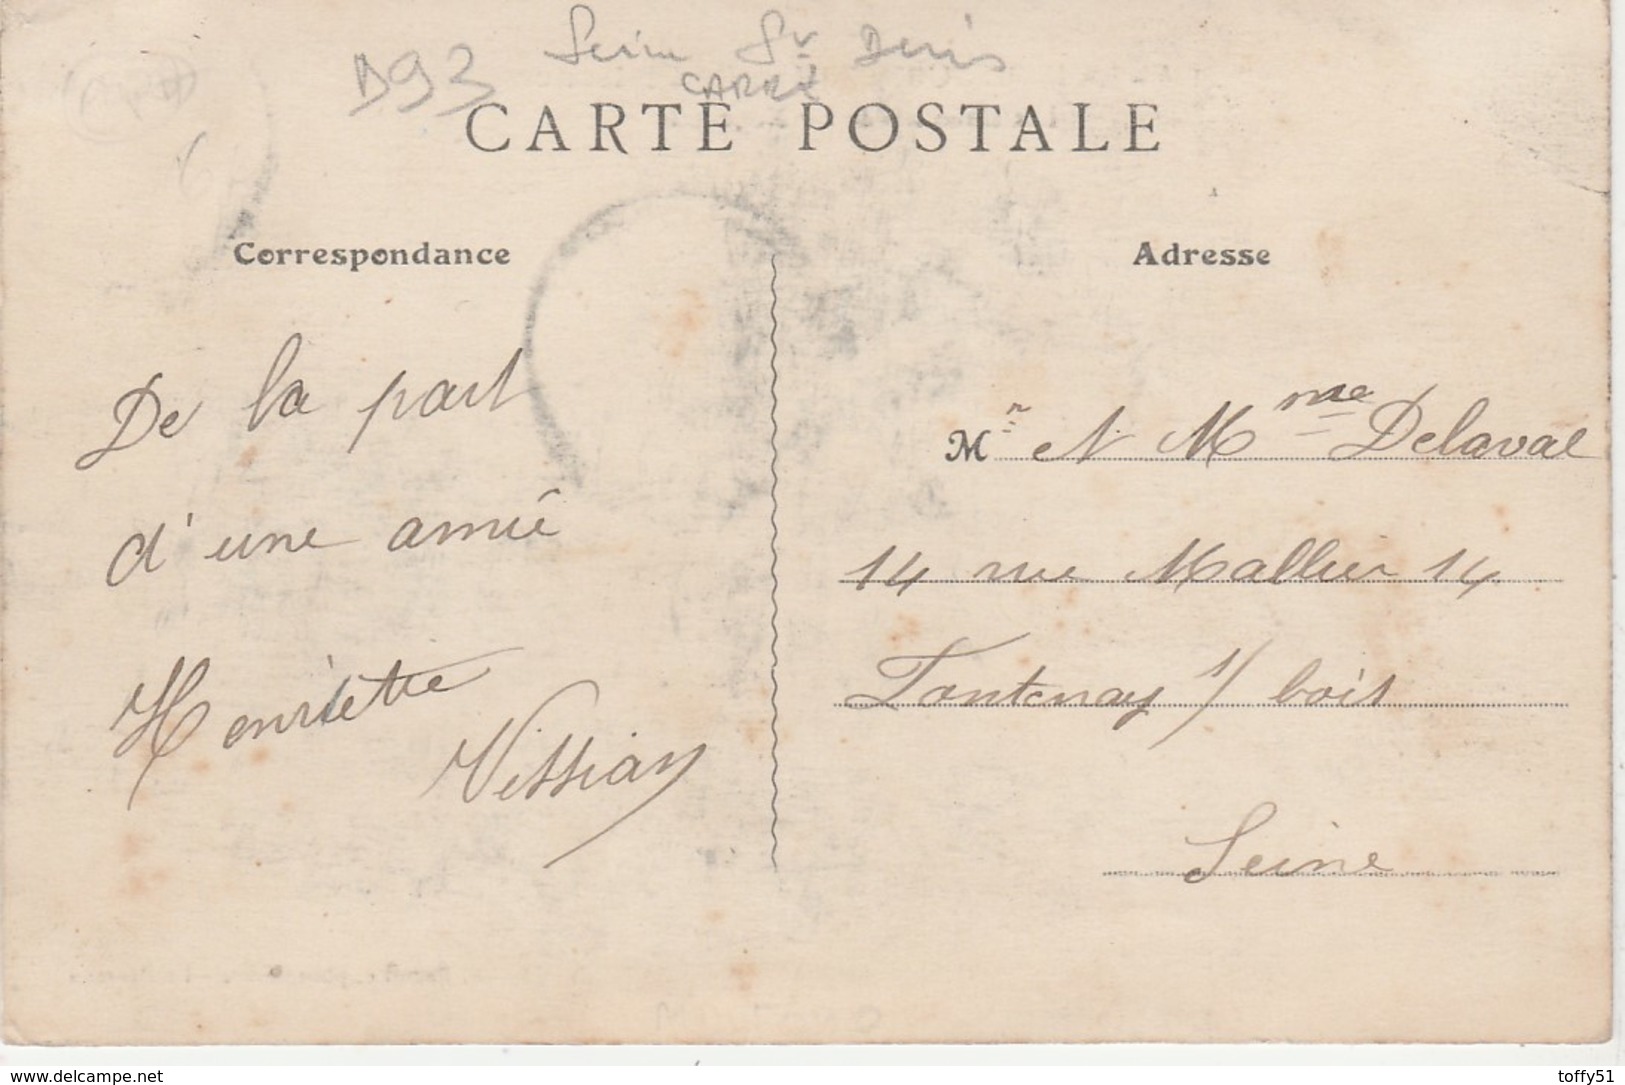 D93 Seine St Denis
CARRÉ
CARTE POSTALE
Correspondance
De la part
d'une amie
Henriette
Vission
Adresse
Mr et Mme Delaval
14 rue Mallier 14
Fontenay s/ bois
Seine
www.delcampe.net
toffy51